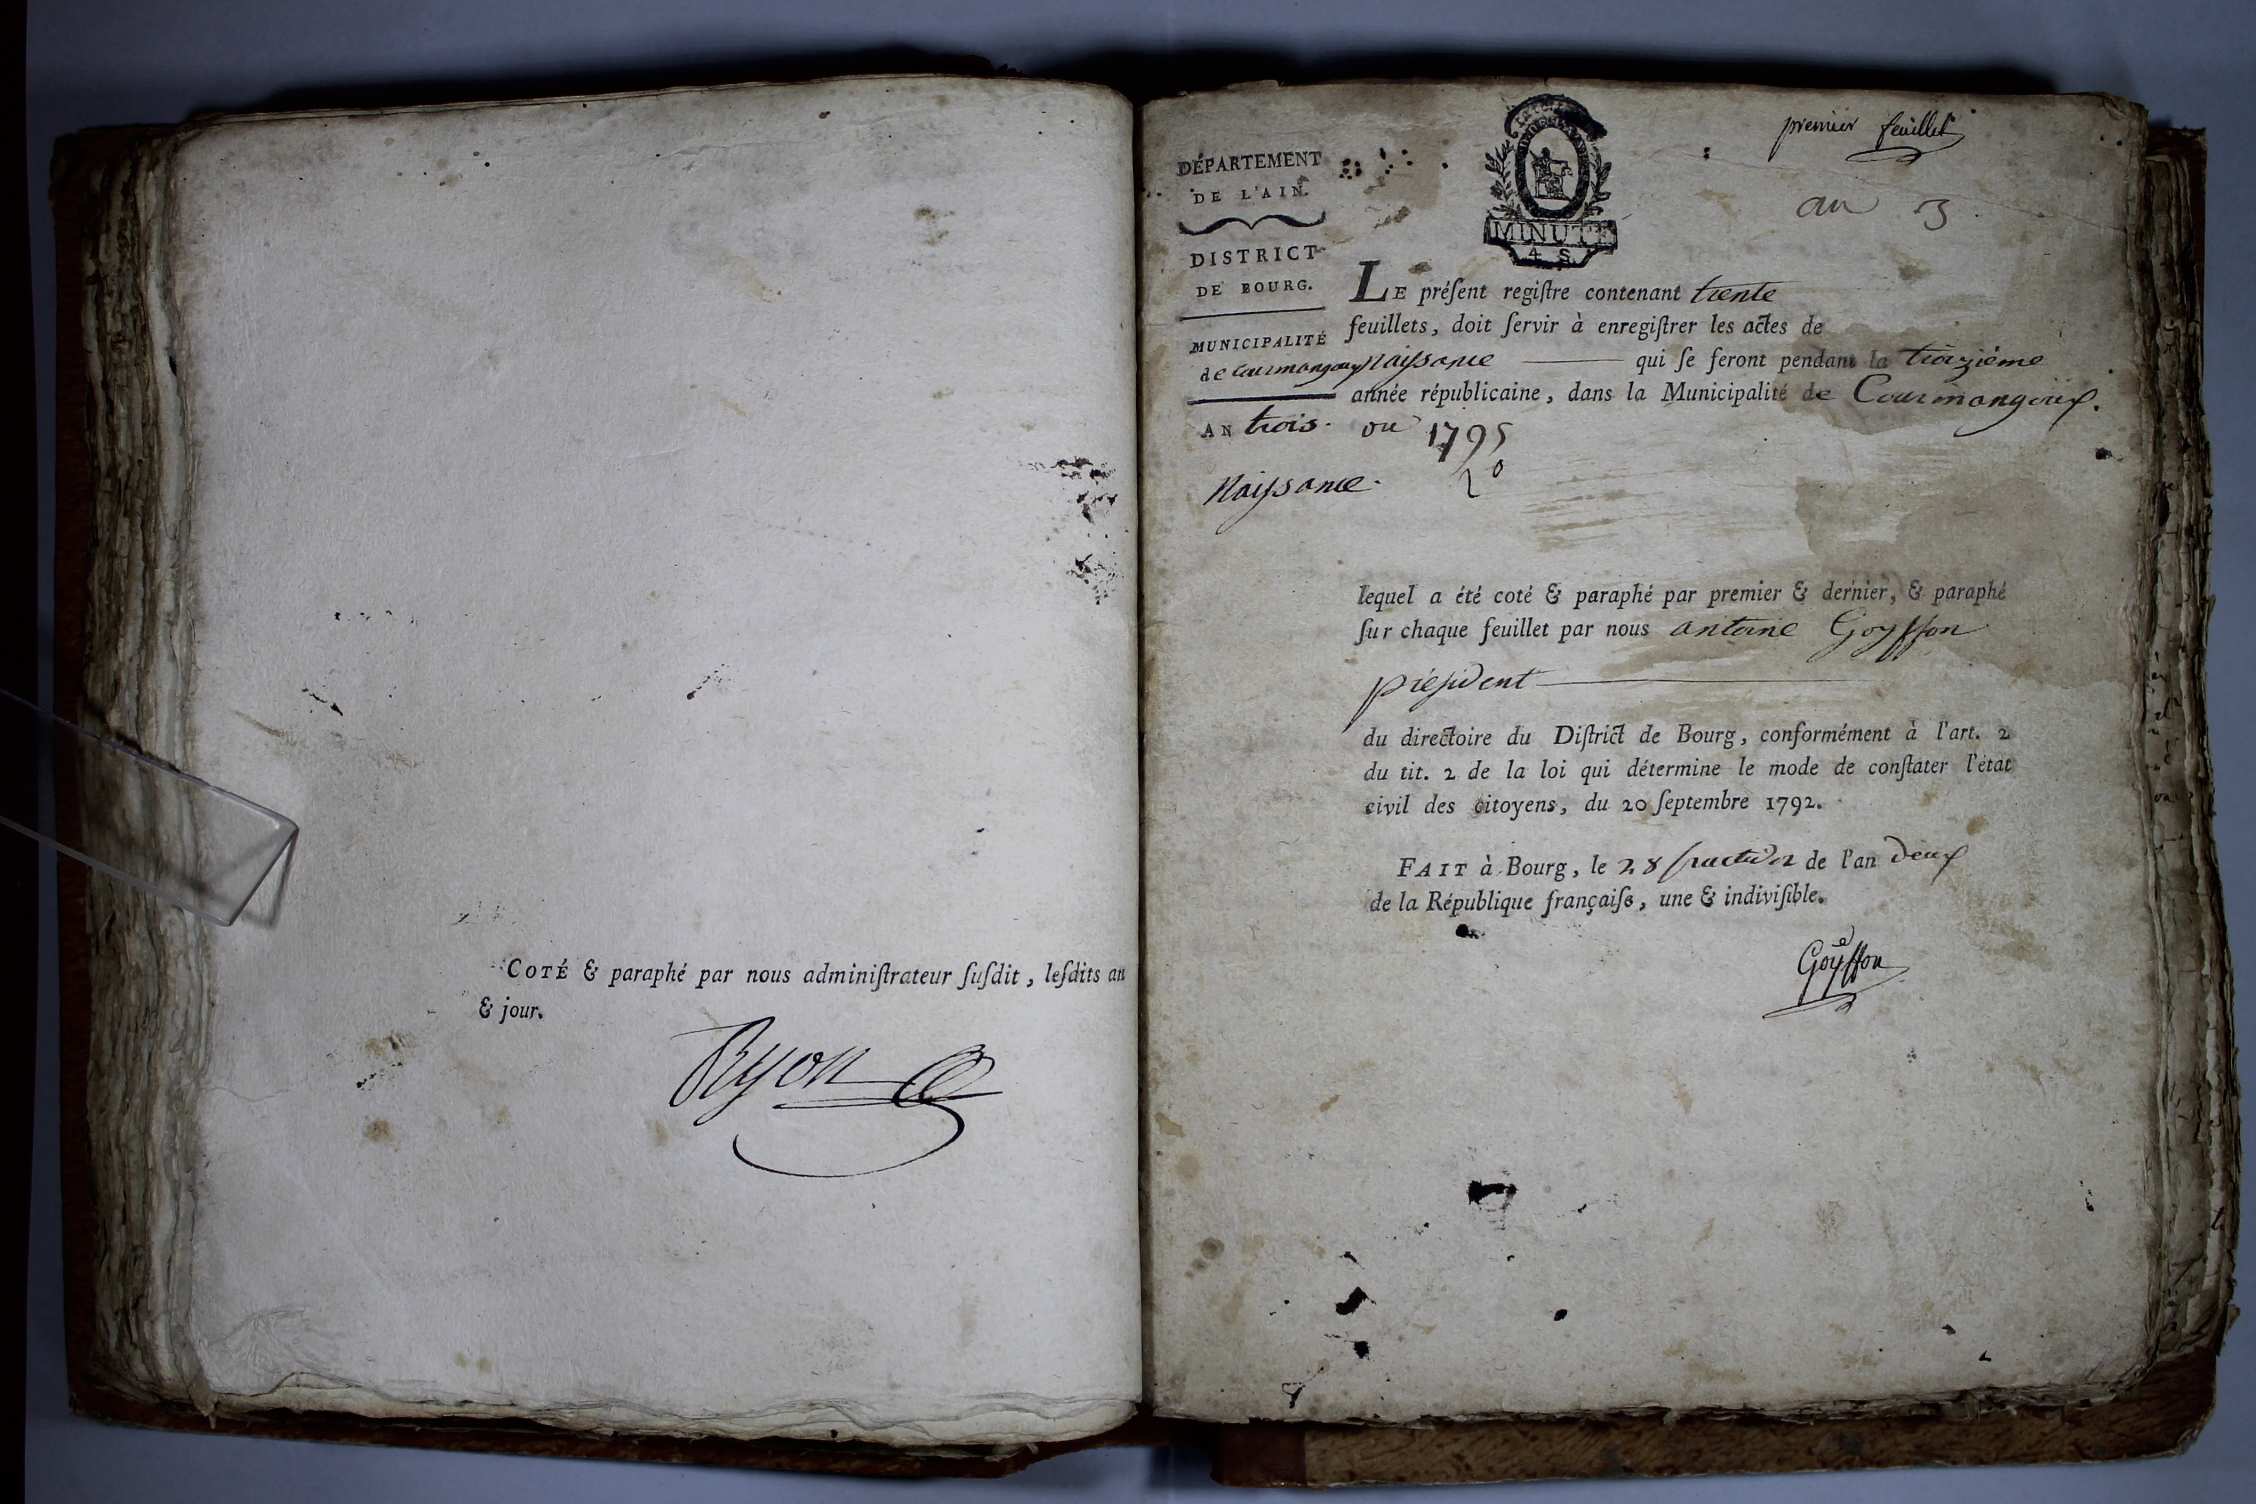 COTÉ & paraphé par nous adminiſtrateur ſuſdit, leſdits an
& jour.
Ryon
premier feuillet
an 3
MINUTE
4 S.
DÉPARTEMENT
DE L'AIN.
DISTRICT
DE BOURG.
MUNICIPALITÉ
de Courmangoux
AN trois. ou 1795
Naissance.
LE préſent regiſtre contenant trente
feuillets, doit ſervir à enregiſtrer les actes de
Naissance qui ſe feront pendant la troizième
année républicaine, dans la Municipalité de Courmangoux.
lequel a été coté & paraphé par premier & dernier, & paraphé
ſur chaque feuillet par nous antoine Goyffon
préſident
du directoire du Diſtrict de Bourg, conformément à l'art. 2
du tit. 2 de la loi qui détermine le mode de conſtater l'état
civil des citoyens, du 20 ſeptembre 1792.
FAIT à Bourg, le 28 fructidor de l'an deux
de la République françaiſe, une & indiviſible.
Goyffon